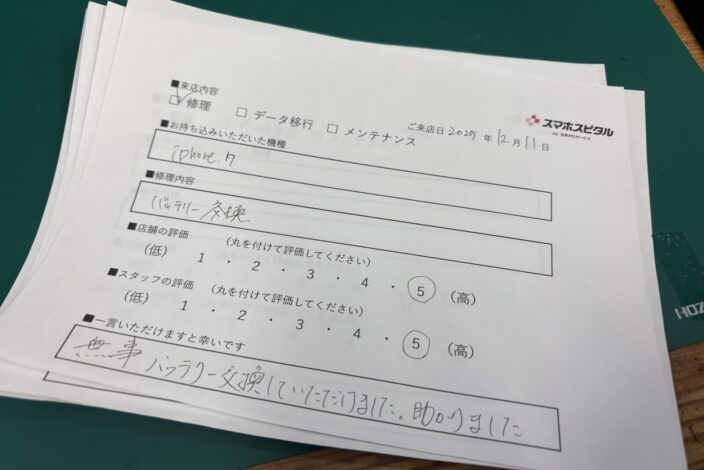 スマホスピタル
by 日本PCサービス
■来店内容
ご来店日 2025 年 12 月 11 日
☑ 修理 □ データ移行 □ メンテナンス
■お持ち込みいただいた機種
iphone 7
■修理内容
バッテリー交換
■店舗の評価 (丸を付けて評価してください)
(低) 1 ・ 2 ・ 3 ・ 4 ・ 5 (高)
■スタッフの評価 (丸を付けて評価してください)
(低) 1 ・ 2 ・ 3 ・ 4 ・ 5 (高)
■一言いただけますと幸いです
無事バッテリー交換していただけました。助かりました
HOZ